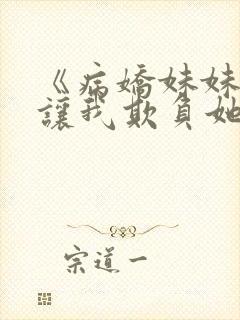 《病嬌妹妹
讓我欺負她
宗道一